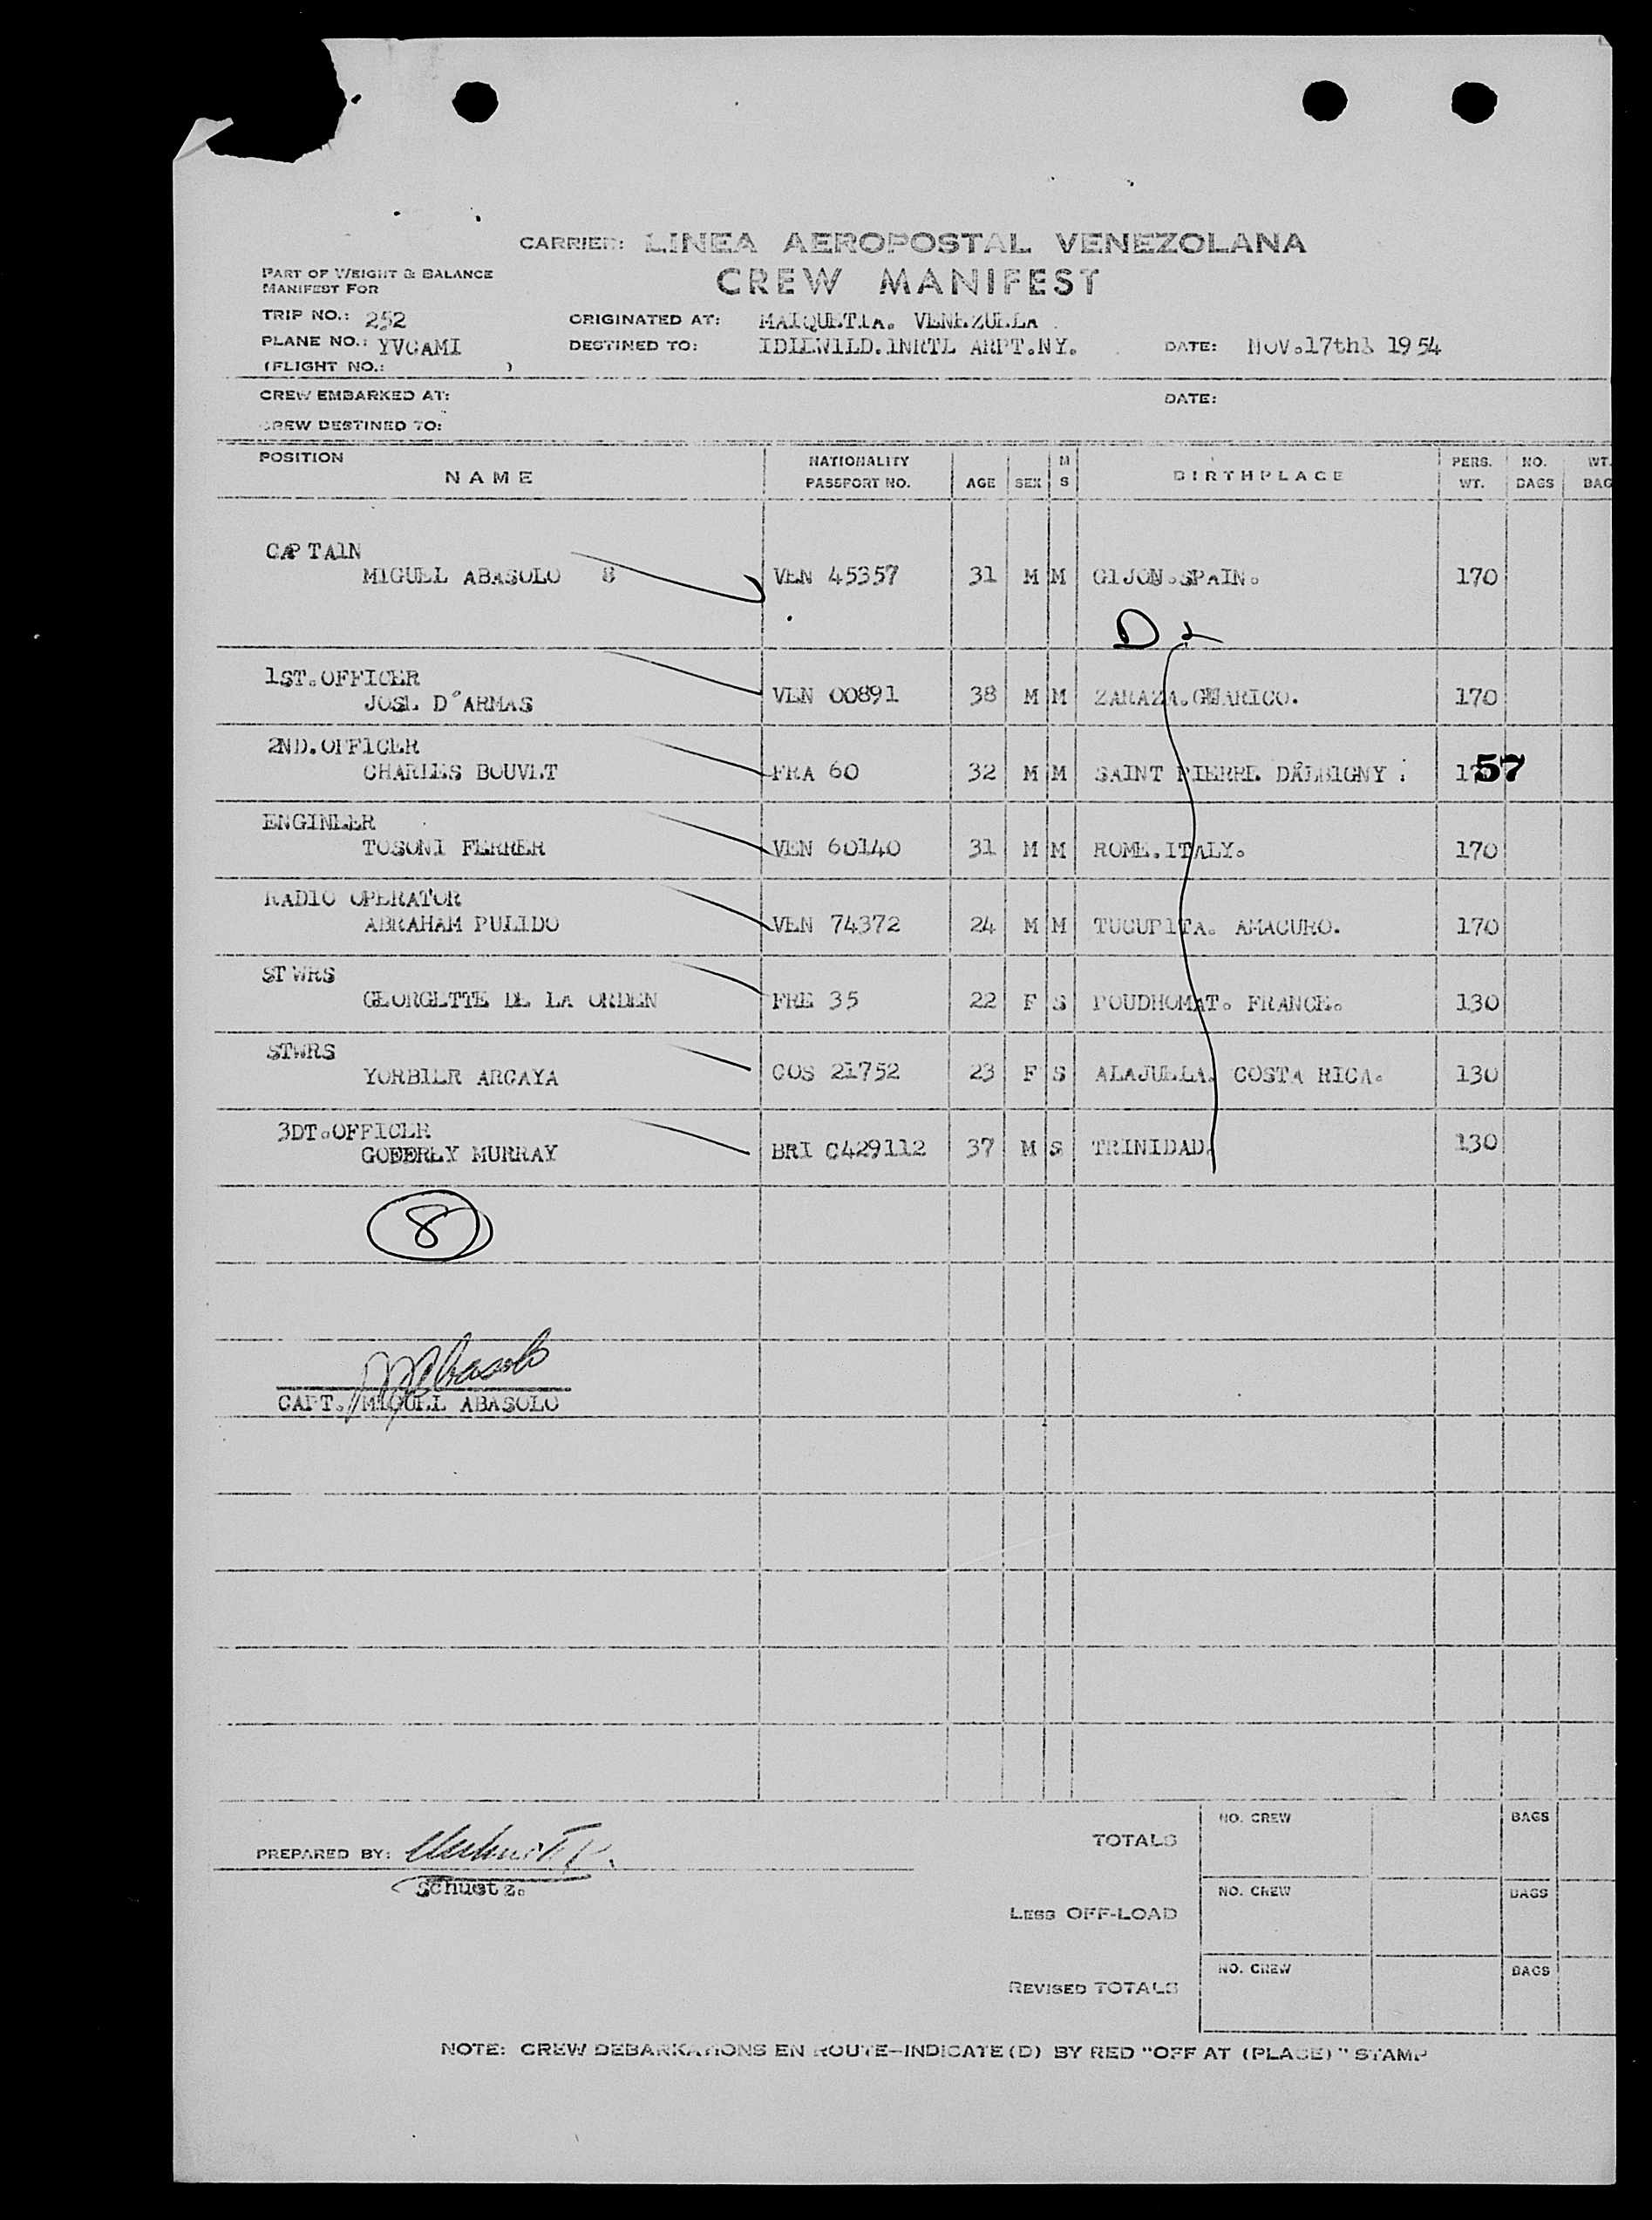 CARRIER: LINEA AEROPOSTAL VENEZOLANA
PART OF WEIGHT & BALANCE
MANIFEST FOR
CREW MANIFEST
TRIP NO.: 252 ORIGINATED AT: MAIQUETIA. VENEZUELA
PLANE NO.: YVCAMI DESTINED TO: IDILWILD.INRTL ARPT.NY. DATE: NOV.17th 1954
(FLIGHT NO.: )
CREW EMBARKED AT: DATE:
CREW DESTINED TO:
POSITION NAME NATIONALITY PASSPORT NO. AGE SEX M S BIRTHPLACE PERS. WT. NO. BAGS WT. BAG
CAPTAIN
MIGUEL ABASOLO 8 VEN 45357 31 M M GIJON.SPAIN. 170
D
1ST.OFFICER
JOSE D'ARMAS VEN 00891 38 M M ZARAZA.GUARICO. 170
2ND.OFFICER
CHARLES BOUVET FRA 60 32 M M SAINT PIERRE DALBIGNY 57
ENGINEER
TOSONI FERRER VEN 60140 31 M M ROME.ITALY. 170
RADIO OPERATOR
ABRAHAM PULIDO VEN 74372 24 M M TUCUPITA. AMACURO. 170
STWRS
GEORGETTE DE LA ORDEN FRE 35 22 F S POUDHOMAT. FRANCE. 130
STWRS
YORBILR ARCAYA COS 21752 23 F S ALAJUELA. COSTA RICA. 130
3DT.OFFICER
MURRAY BRI C429112 37 M S TRINIDAD. 130
8
CAPT. MIGUEL ABASOLO
PREPARED BY:
Schustz.
TOTALS NO. CREW BAGS
LESS OFF-LOAD NO. CREW BAGS
REVISED TOTALS NO. CREW BAGS
NOTE: CREW DEBARKATIONS EN ROUTE—INDICATE (D) BY RED "OFF AT (PLACE)" STAMP